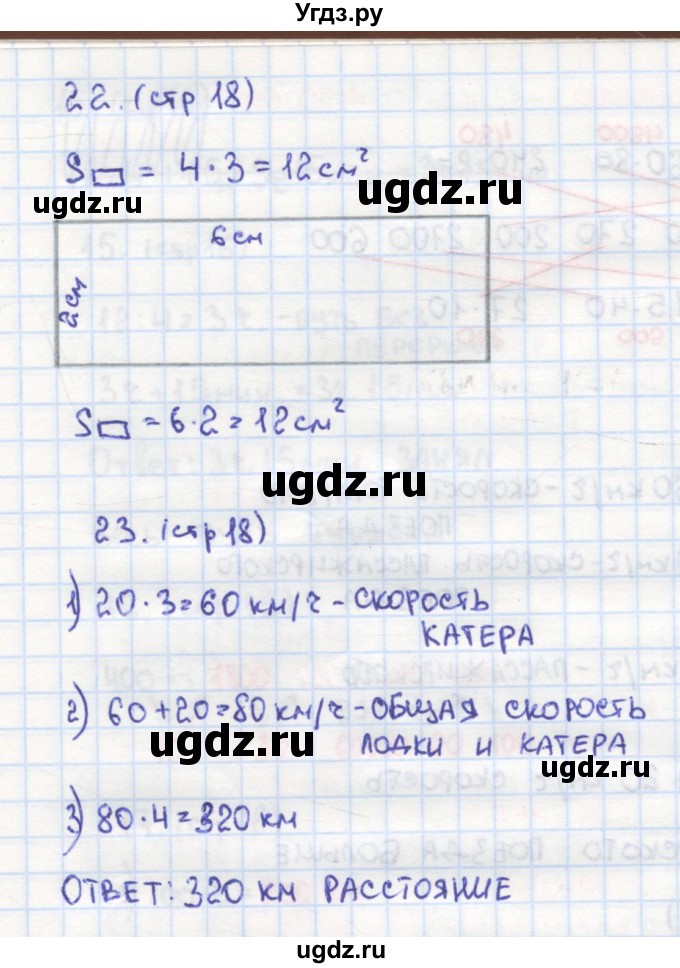 Угдз.ру
22. (стр 18)
S▭ = 4·3=12см²
ugdz.ru
ugdz.ru
6см
2см
S▭ = 6·2=12см²
ugdz.ru
23. (стр 18)
1) 20·3=60 км/ч - скорость
катера
ugdz.ru
2) 60+20=80 км/ч - общая скорость
лодки и катера
ugdz.ru
ugdz.ru
3) 80·4=320 км
Ответ: 320 км расстояние
ugdz.ru